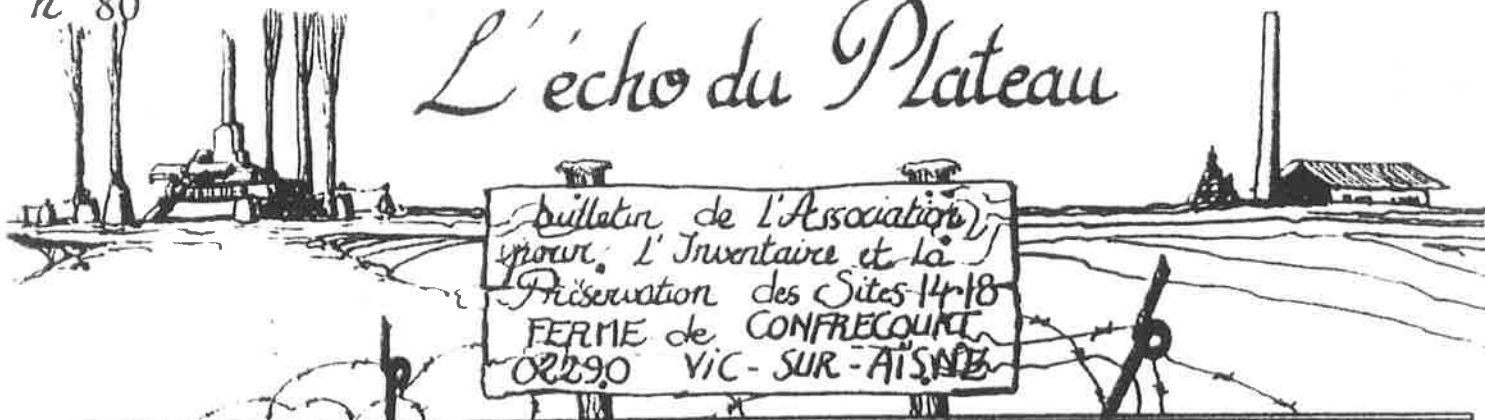 n° 80
L'écho du Plateau
bulletin de l'Association
pour l'Inventaire et la
Préservation des Sites 14-18
FERME de CONFRECOURT
02290 ViC-SUR-AÏSNE